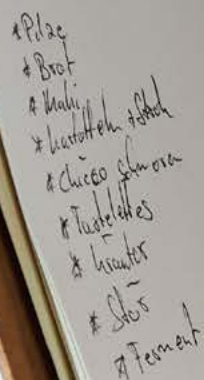 * Pilze
* Brot
* Mahi
* Kartoffeln + Stroh
* Chicco schmoren
* Tartelettes
* Kräuter
* Stör
* Ferment